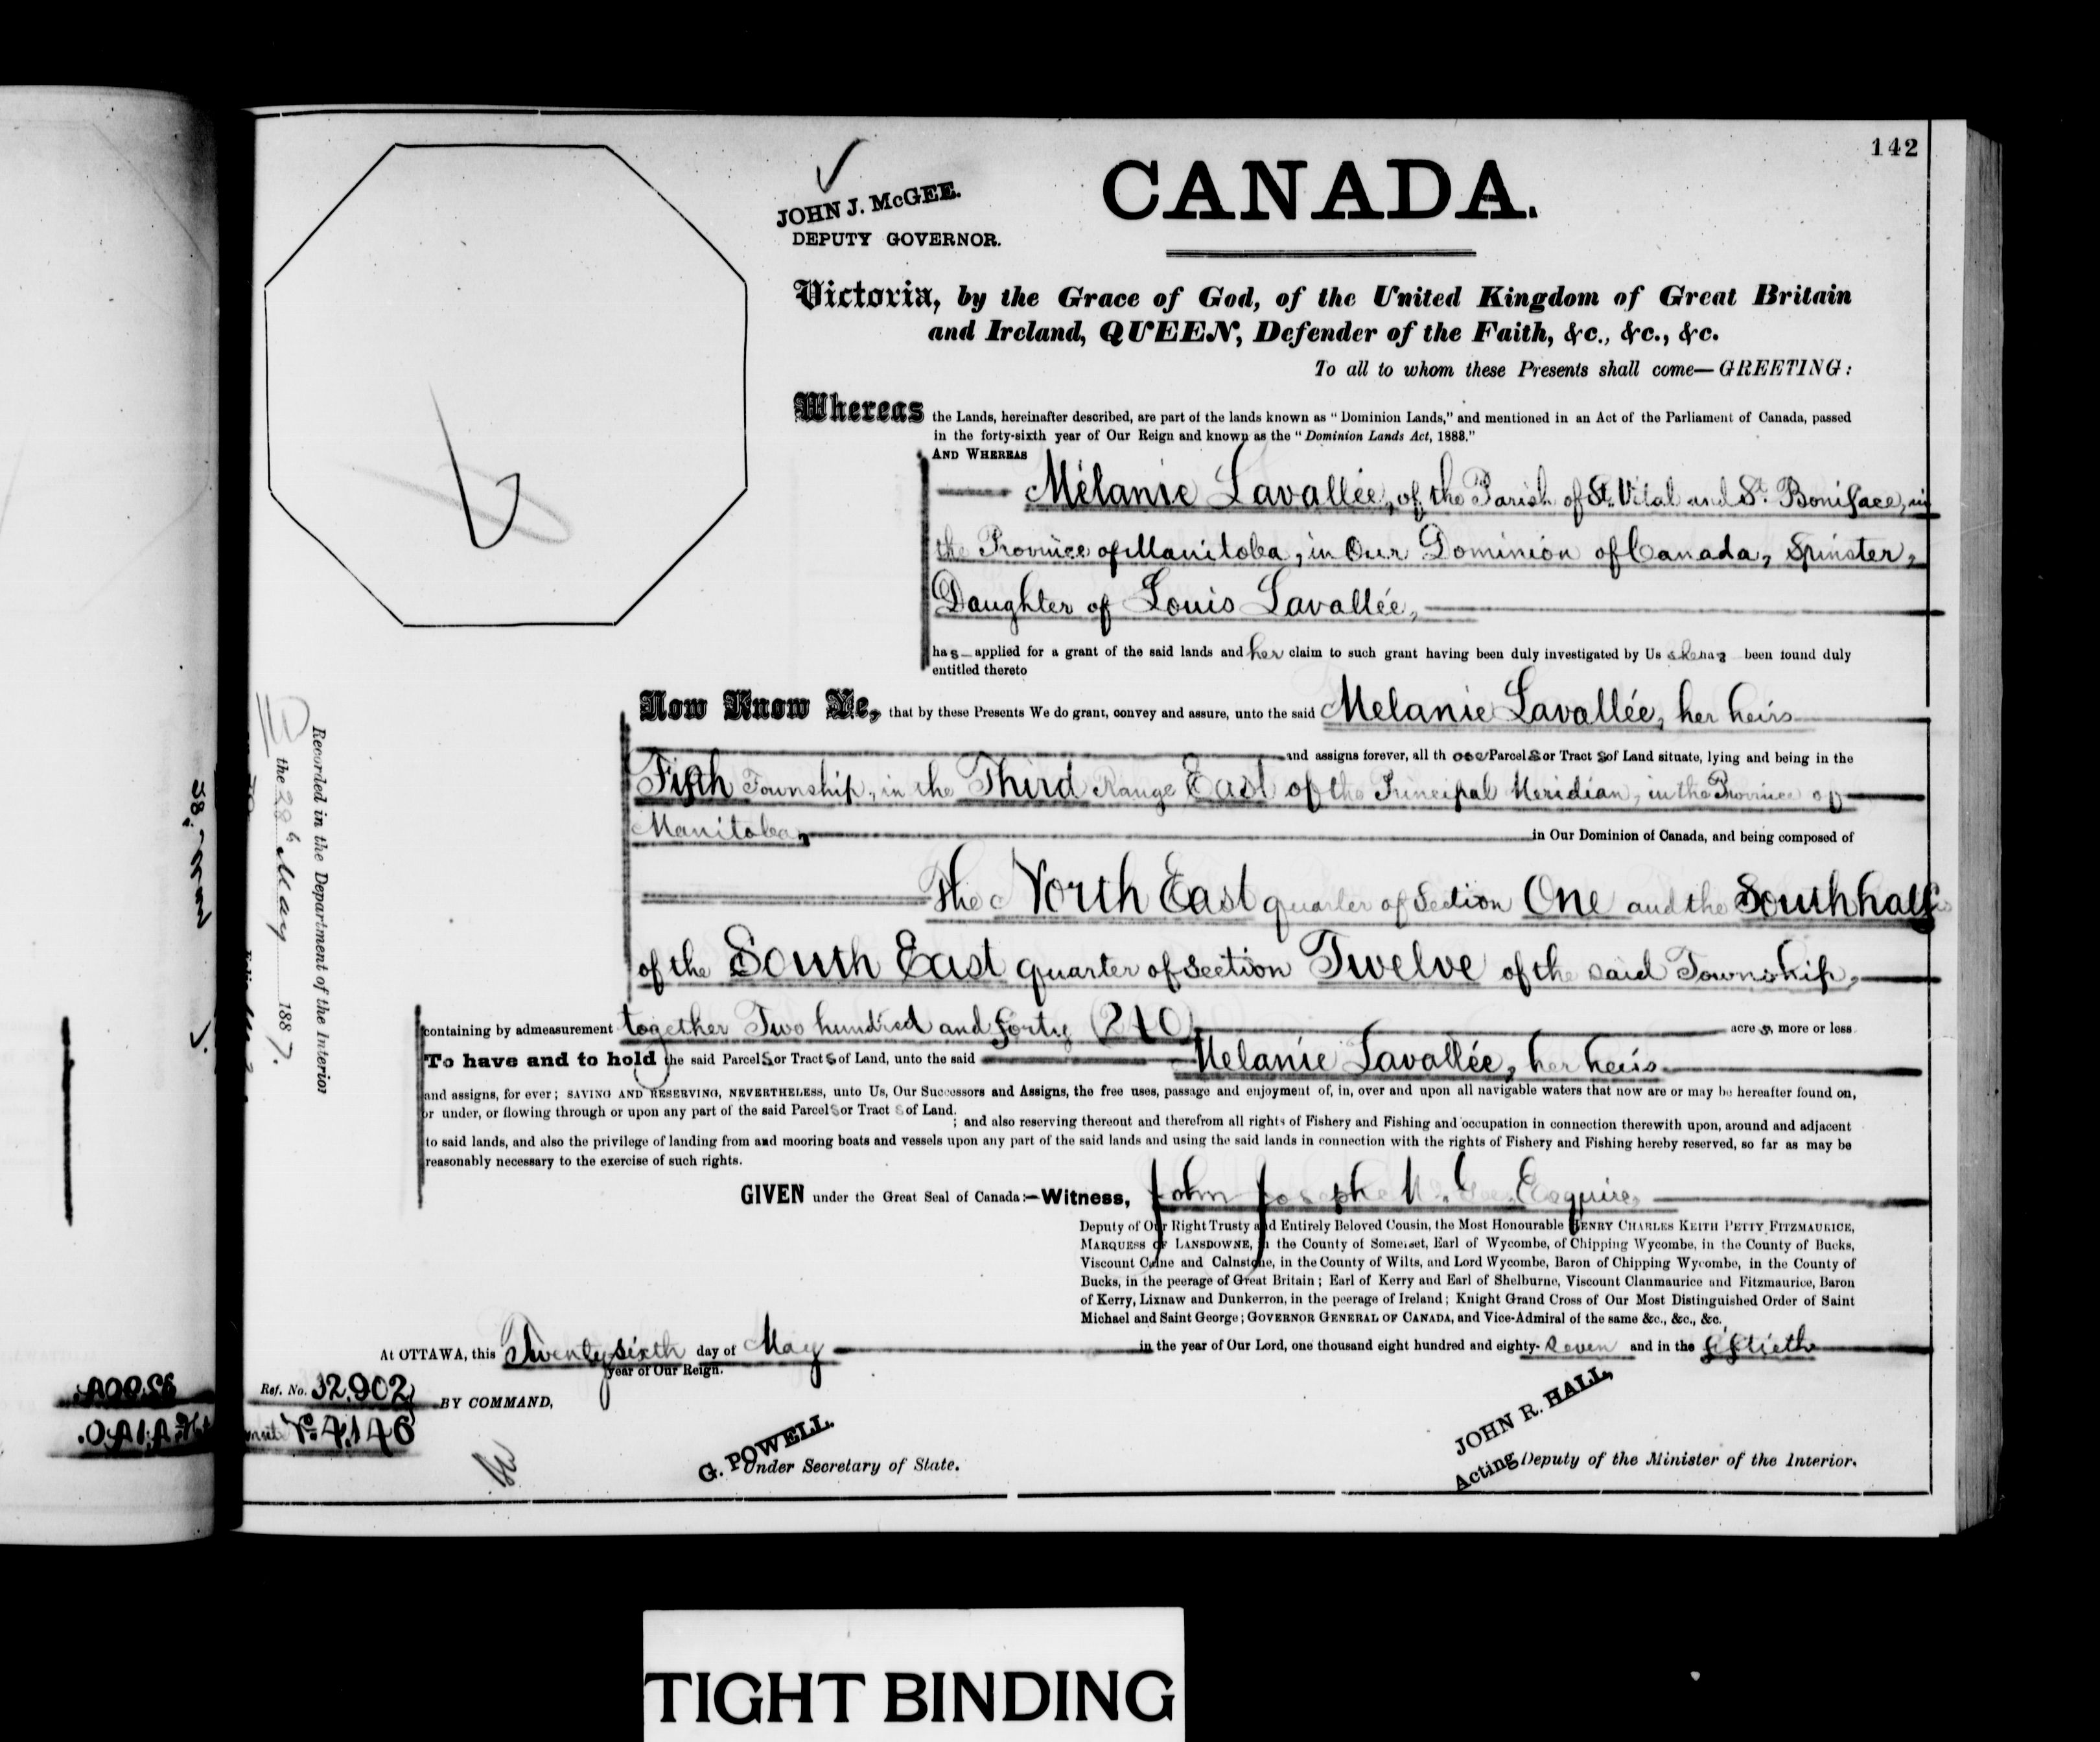 142
JOHN J. McGEE.
DEPUTY GOVERNOR.
CANADA.
Victoria, by the Grace of God, of the United Kingdom of Great Britain
and Ireland, QUEEN, Defender of the Faith, &c., &c., &c.
To all to whom these Presents shall come—GREETING:
Whereas the Lands, hereinafter described, are part of the lands known as "Dominion Lands," and mentioned in an Act of the Parliament of Canada, passed
in the forty-sixth year of Our Reign and known as the "Dominion Lands Act, 1883."
AND WHEREAS
Mélanie Lavallée, of the Parish of St. Vital and St. Boniface, in
the Province of Manitoba, in Our Dominion of Canada, Spinster,
Daughter of Louis Lavallée,
has applied for a grant of the said lands and her claim to such grant having been duly investigated by Us she has been found duly
entitled thereto
Now Know Ye, that by these Presents We do grant, convey and assure, unto the said Melanie Lavallée, her heirs
and assigns forever, all those Parcels or Tracts of Land situate, lying and being in the
Fifth Township, in the Third Range East of the Principal Meridian, in the Province of
Manitoba, in Our Dominion of Canada, and being composed of
The North East quarter of Section One and the South half
of the South East quarter of Section Twelve of the said Township,
containing by admeasurement together Two hundred and forty (240) acres, more or less
To have and to hold the said Parcels or Tracts of Land, unto the said Melanie Lavallée, her heirs
and assigns, for ever; SAVING AND RESERVING, NEVERTHELESS, unto Us, Our Successors and Assigns, the free uses, passage and enjoyment of, in, over and upon all navigable waters that now are or may be hereafter found on,
or under, or flowing through or upon any part of the said Parcels or Tracts of Land.
; and also reserving thereout and therefrom all rights of Fishery and Fishing and occupation in connection therewith upon, around and adjacent
to said lands, and also the privilege of landing from and mooring boats and vessels upon any part of the said lands and using the said lands in connection with the rights of Fishery and Fishing hereby reserved, so far as may be
reasonably necessary to the exercise of such rights.
GIVEN under the Great Seal of Canada:—Witness, John Joseph McGee, Esquire,
Deputy of Our Right Trusty and Entirely Beloved Cousin, the Most Honourable HENRY CHARLES KEITH PETTY FITZMAURICE,
MARQUESS OF LANSDOWNE, in the County of Somerset, Earl of Wycombe, of Chipping Wycombe, in the County of Bucks,
Viscount Calne and Calnstone, in the County of Wilts, and Lord Wycombe, Baron of Chipping Wycombe, in the County of
Bucks, in the peerage of Great Britain; Earl of Kerry and Earl of Shelburne, Viscount Clanmaurice and Fitzmaurice, Baron
of Kerry, Lixnaw and Dunkerron, in the peerage of Ireland; Knight Grand Cross of Our Most Distinguished Order of Saint
Michael and Saint George; GOVERNOR GENERAL OF CANADA, and Vice-Admiral of the same &c., &c., &c.,
At OTTAWA, this Twenty sixth day of May in the year of Our Lord, one thousand eight hundred and eighty-seven and in the fiftieth
year of Our Reign.
Ref. No. 32.902
BY COMMAND,
No. 4.146
G. POWELL.
Under Secretary of State.
JOHN R. HALL,
Acting Deputy of the Minister of the Interior.
Recorded in the Department of the Interior
the 28th May 1887.
TIGHT BINDING